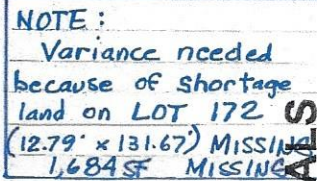 NOTE:
Variance needed
because of shortage
land on LOT 172
(12.79' x 131.67') MISSING
1,684 SF MISSING
ALS